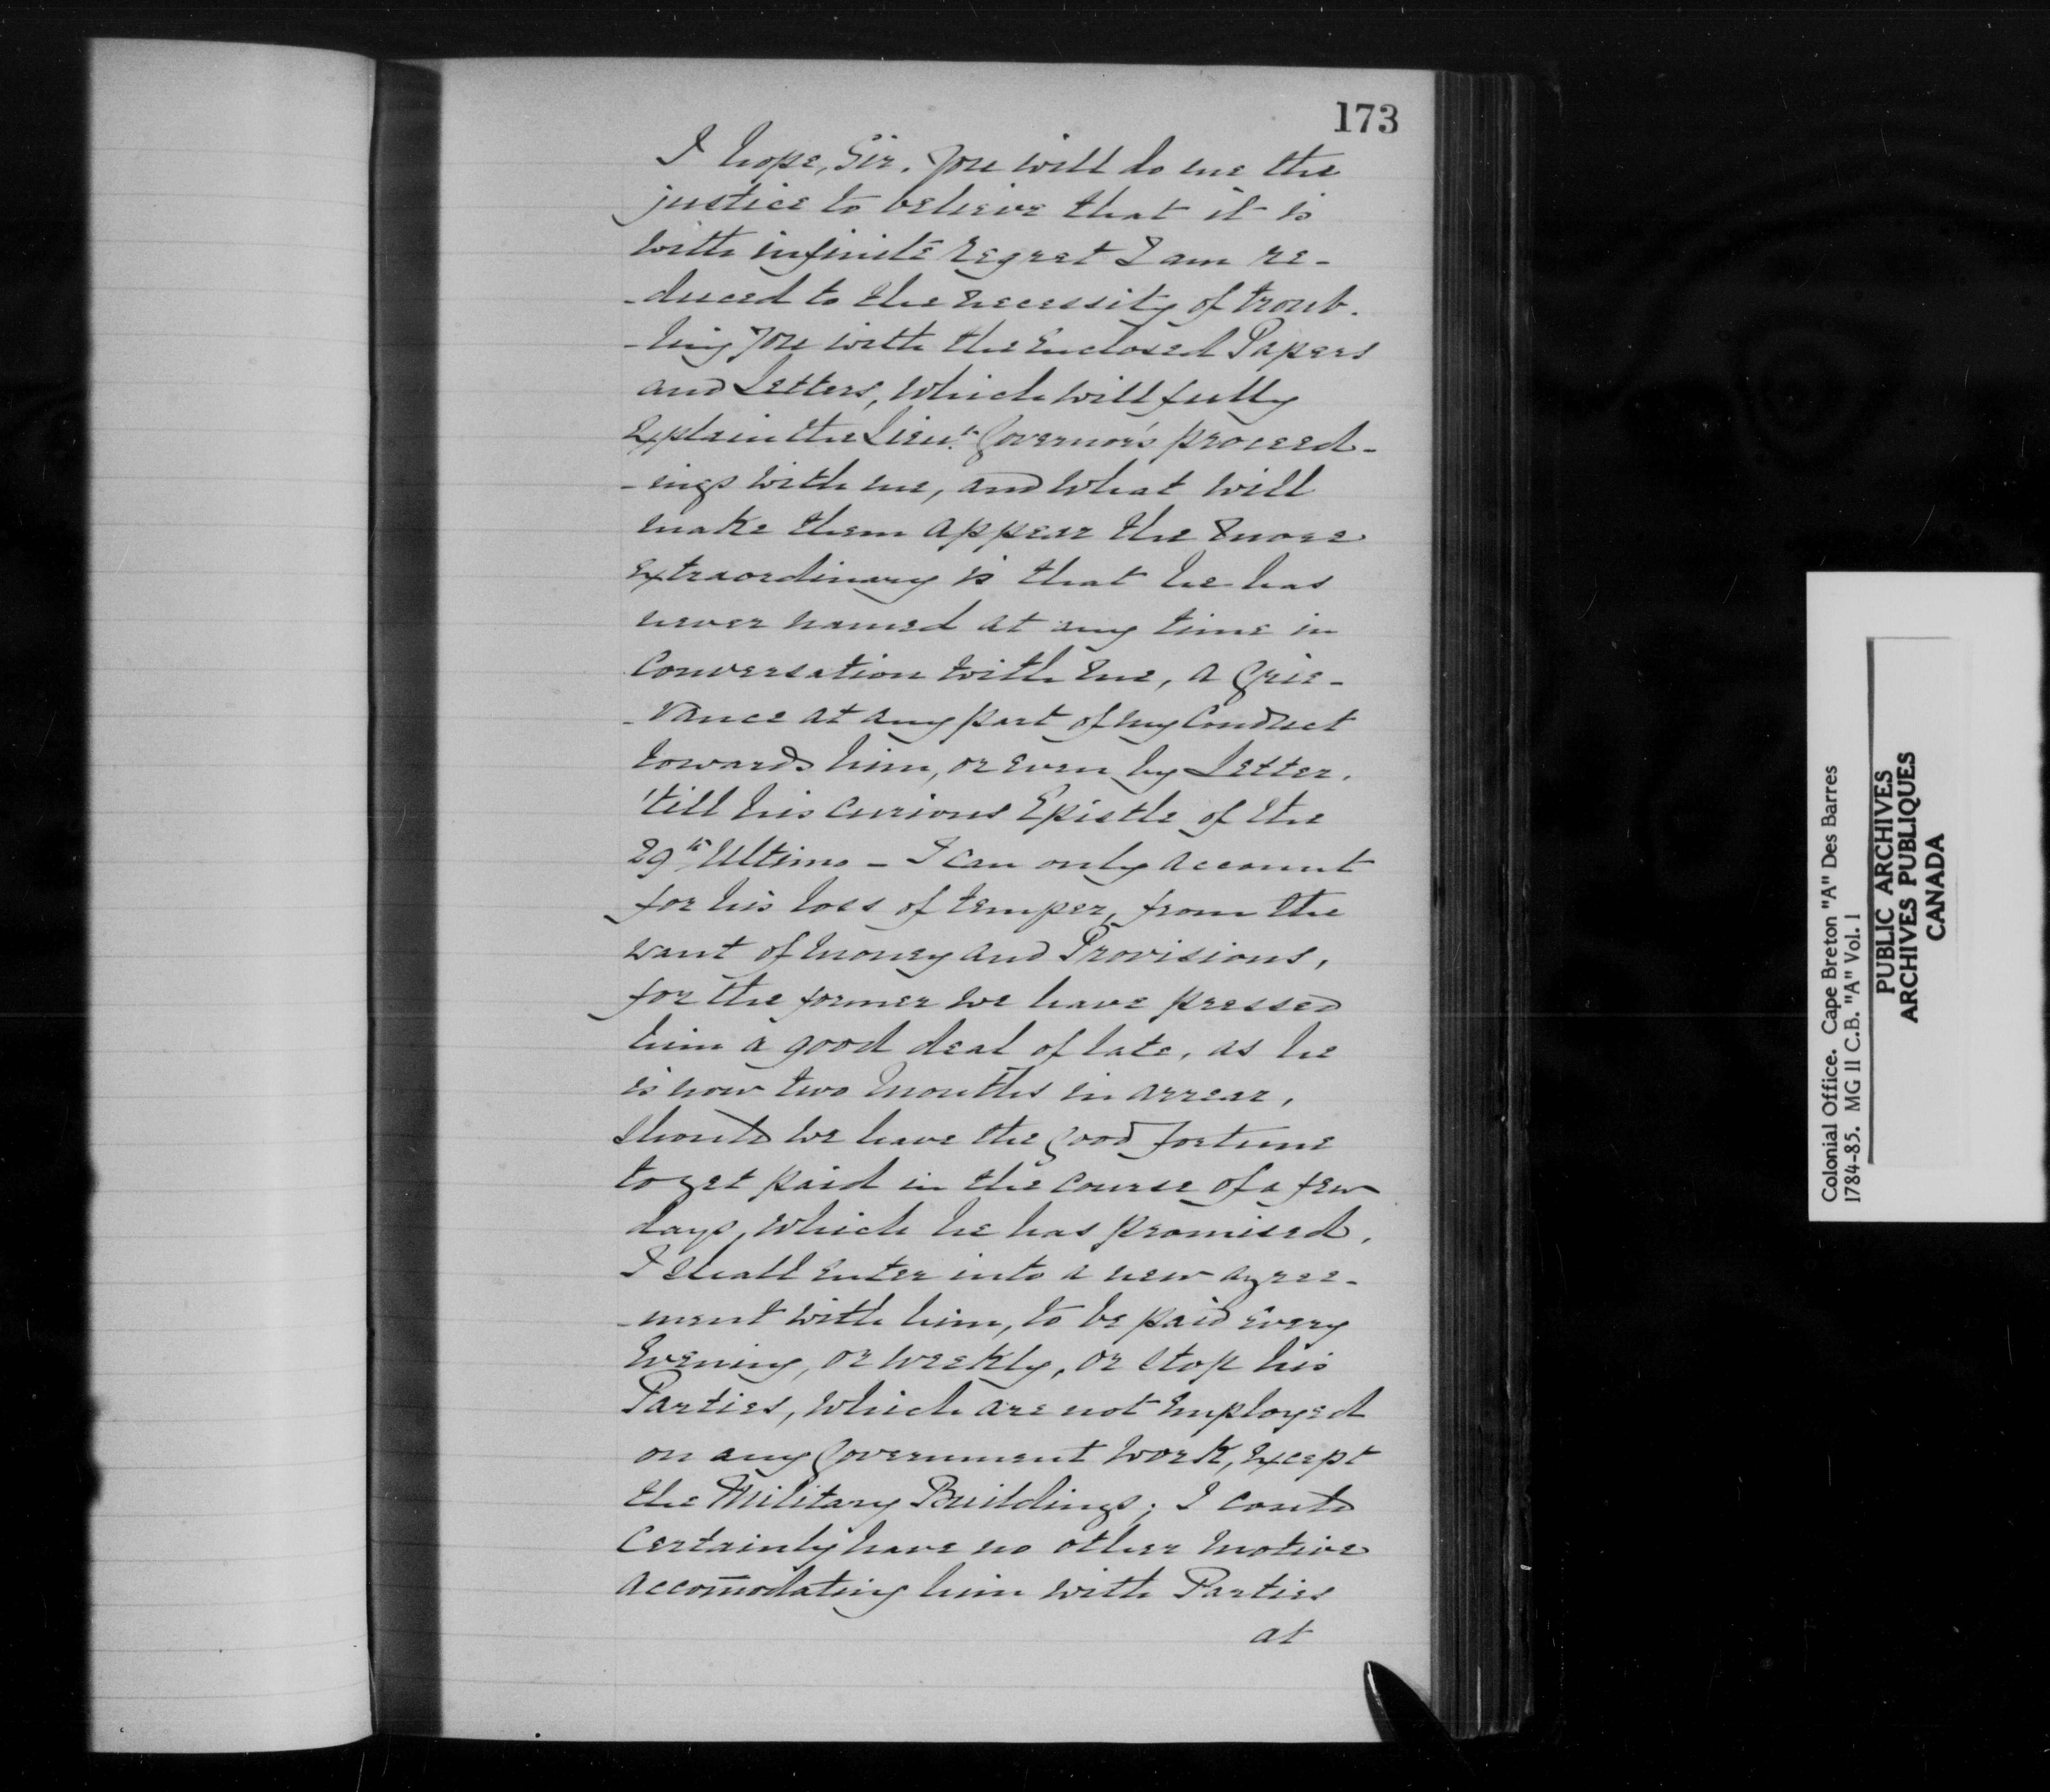 173
I hope, Sir. You will do me the
justice to believe that it is
with infinite regret I am re-
-duced to the necessity of troub-
-ling You with the Enclosed Papers
and Letters, which will fully
Explain the Lieut. Governor's proceed-
-ings with me, and what will
make them appear the more
Extraordinary is that he has
never named at any time in
Conversation with me, a Grie-
-vance at any part of my Conduct
towards him, or even by Letter,
'till his curious Epistle of the
29th Ultimo - I can only account
for his loss of temper, from the
want of money and Provisions,
for the former we have pressed
him a good deal of late, as he
is now two Months in arrear,
Should we have the good fortune
to get paid in the course of a few
days, which he has promised,
I shall enter into a new agree-
-ment with him, to be paid every
Evening, or weekly, or stop his
Parties, which are not Employed
on any Government work, Except
the Military Buildings; I could
Certainly have no other motive
accom̄odating him with Parties
at
Colonial Office. Cape Breton "A" Des Barres
1784-85. MG 11 C.B. "A" Vol. 1
PUBLIC ARCHIVES
ARCHIVES PUBLIQUES
CANADA